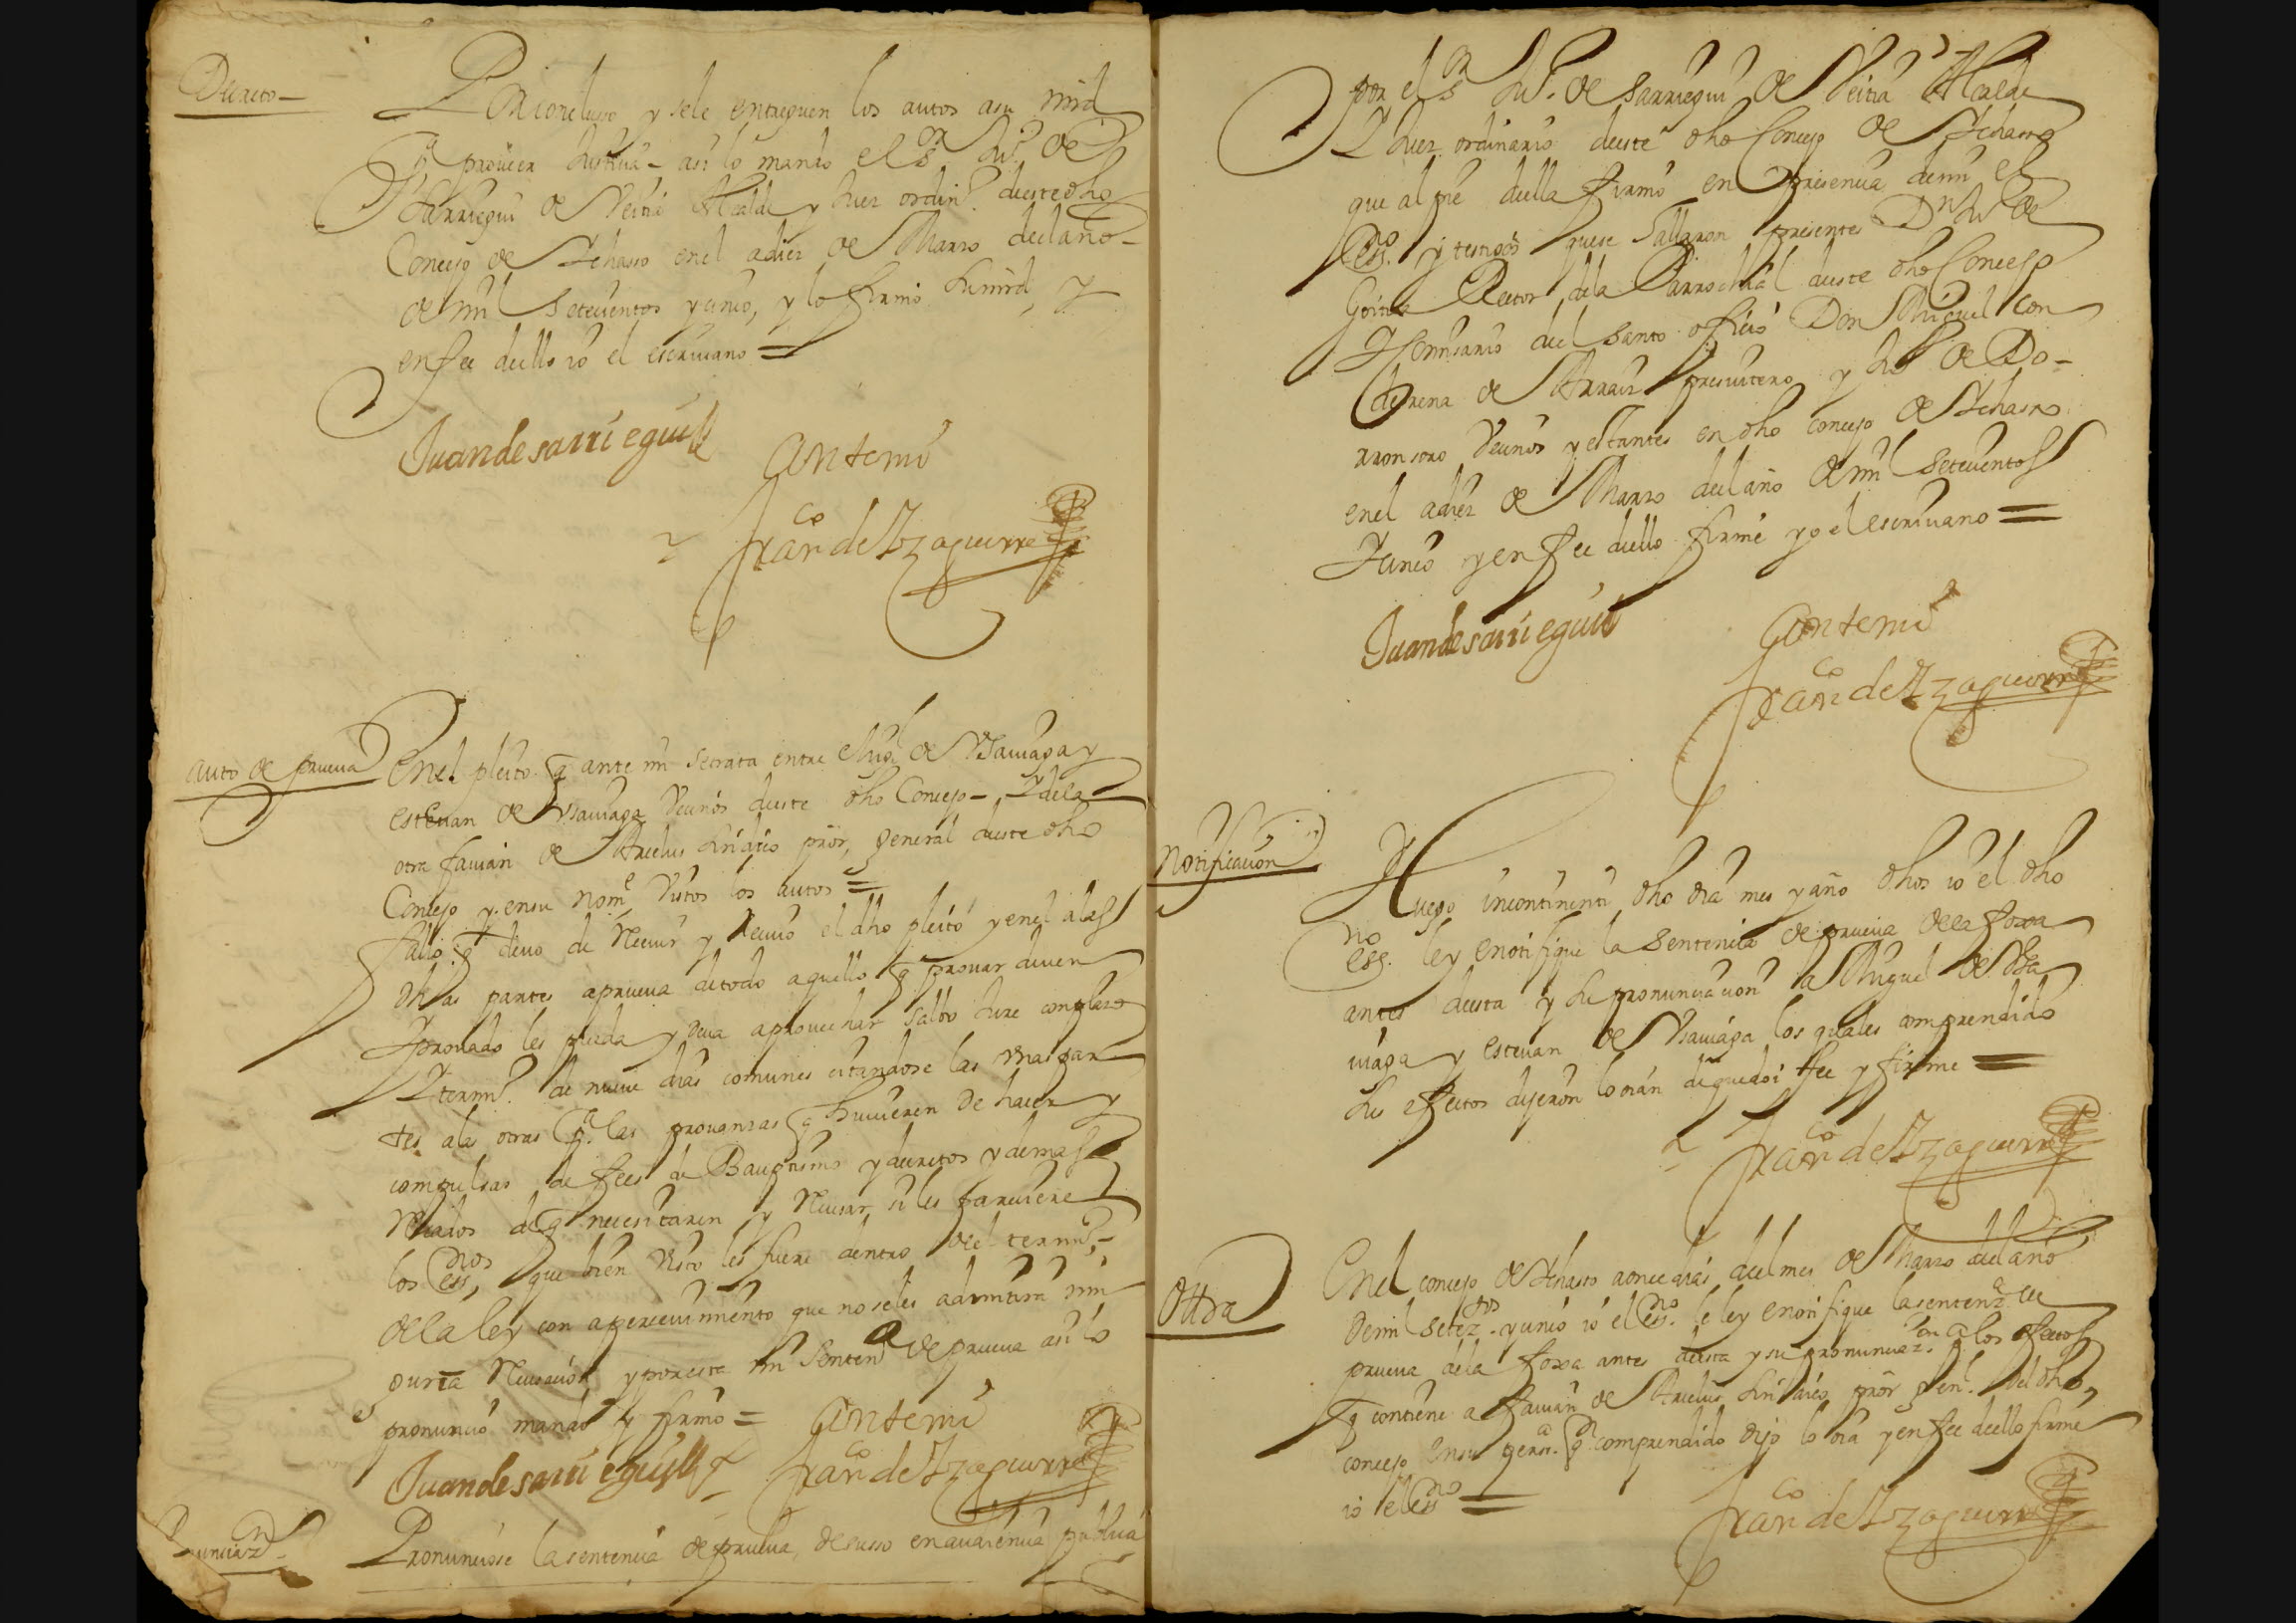 Decreto
Por concluso y sele entreguen los autos asu mrd
pa proveer Justicia - asi lo mando el sor Juo de
Sarriegui de Veitia Alcalde y Juez ordino deeste dho
Concejo de Ichasso enel adiez de Marzo del año
de mil setecientos y cinco, y lo firmó su mrd, y
enfee deello io el escrivano =
Juan de sarriegui
Antemi
Franco de Yzaguirre
auto de prueva
Enel pleito q ante mi setrata entre Migl de Usaviaga y
estevan de Usaviaga vecinos deeste dho Concejo - y dela
otra favian de Arcelus sindico prör, general deeste dho
Concejo y ensu nome Vistos los autos =
fallo q devo de Recivir y Recivo el dho pleito y enel alas
dhas partes aprueva detodo aquello q provar deven
y provado les pueda y deva aprovechar salbo Jure conplazo
y termino de nueve dias comunes citandose las unas par
tes alas otras pa las provanzas q huvieren de hacer y
compulsas de fees de Bauptismo y decretos y demas
Recados de q necesitaren y Recusar, si les pareciere
los essnos, que bien visto les fuere dentro del termino
dela ley con apercevimiento que noseles admitirá nin
guna Recusación y poresta mi sentena de prueva asi lo
pronunció mandó y firmó =
Antemi
Juan de sarriegui
Franco de Yzaguirre
Pronunciose la sentencia de prueva, desusso enaudiencia publica
por el sor Juo de sarriegui de Veitia Alcalde
y Juez ordinario deeste dho Concejo de Ichasso
que al pie deella firmó en presencia demi el
essno y testigos quese hallaron presentes Dn Juo de
Goitia Rector dela Parrochial deeste dho Concejo
y Comisario del santo oficio Don Miguel con
de Arraiz presvitero y Juo de Do-
rronsoro vecinos y estantes en dho concejo de Ichasso
enel adiez de Marzo del año de mil setecientos
y cinco y enfee deello firmé yo el escrivano =
Juan de sarriegui
Antemi
Franco de Yzaguirre
Notificacion
Y luego incontinenti dho dia mes y año dhos io el dho
essno ley enotifique la sentencia de prueva dela foxa
antes deesta y su pronunciacion a Miguel de Usa
viaga y estevan de Usaviaga los quales comprendido
sus efectos dijeron lo oian dequedoi fee y firme =
Franco de Yzaguirre
Ottra
Enel concejo de Ichasso aonce dias del mes de Marzo del año
demil seteztos y cinco io el essno le ley enotifique lasentenza de
prueva dela foxa antes deesta y su pronunciazon a los efectos
q contiene a favian de Arcelus sindico prör genl. del dho
concejo ensu persa qn comprendido dijo lo oia y enfee deello firme
io el essno =
Franco de Yzaguirre